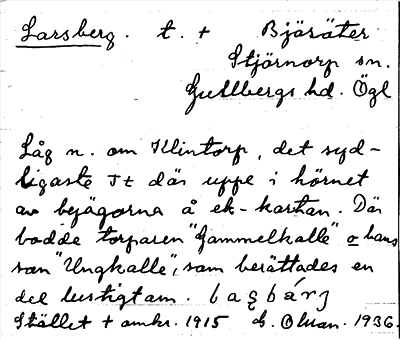 Larsberg. t. + Bjäsäter
Stjärnorp sn.
Gullbergs hd. Ögl
Låg n. om Klintorp, det syd-
ligaste Jt där uppe i hörnet
av bejägorna å ek-kartan. Där
bodde torparen "Gammelkalle" o hans
son "Ungkalle", som berättades en
del lustigt om.
Stället + omkr. 1915 G. Olson. 1936.